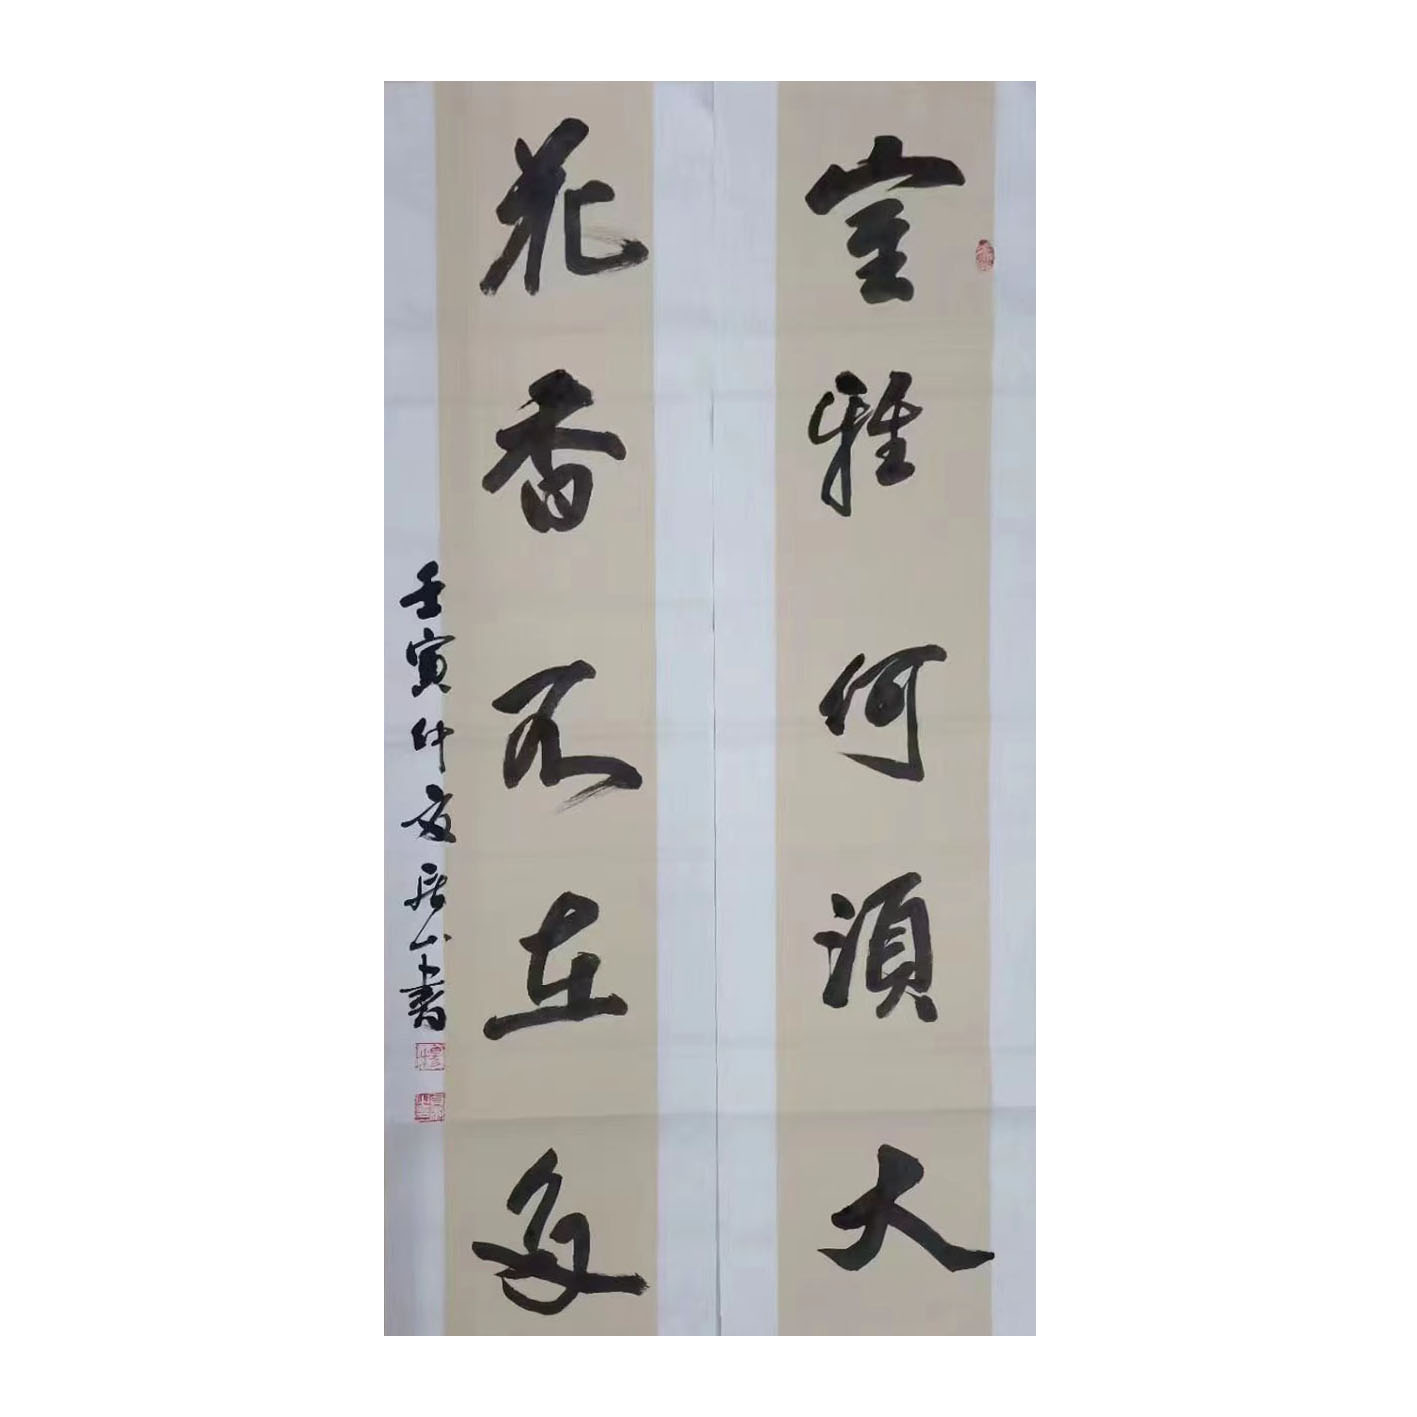 室雅何須大
花香不在多
壬寅仲夏居山書